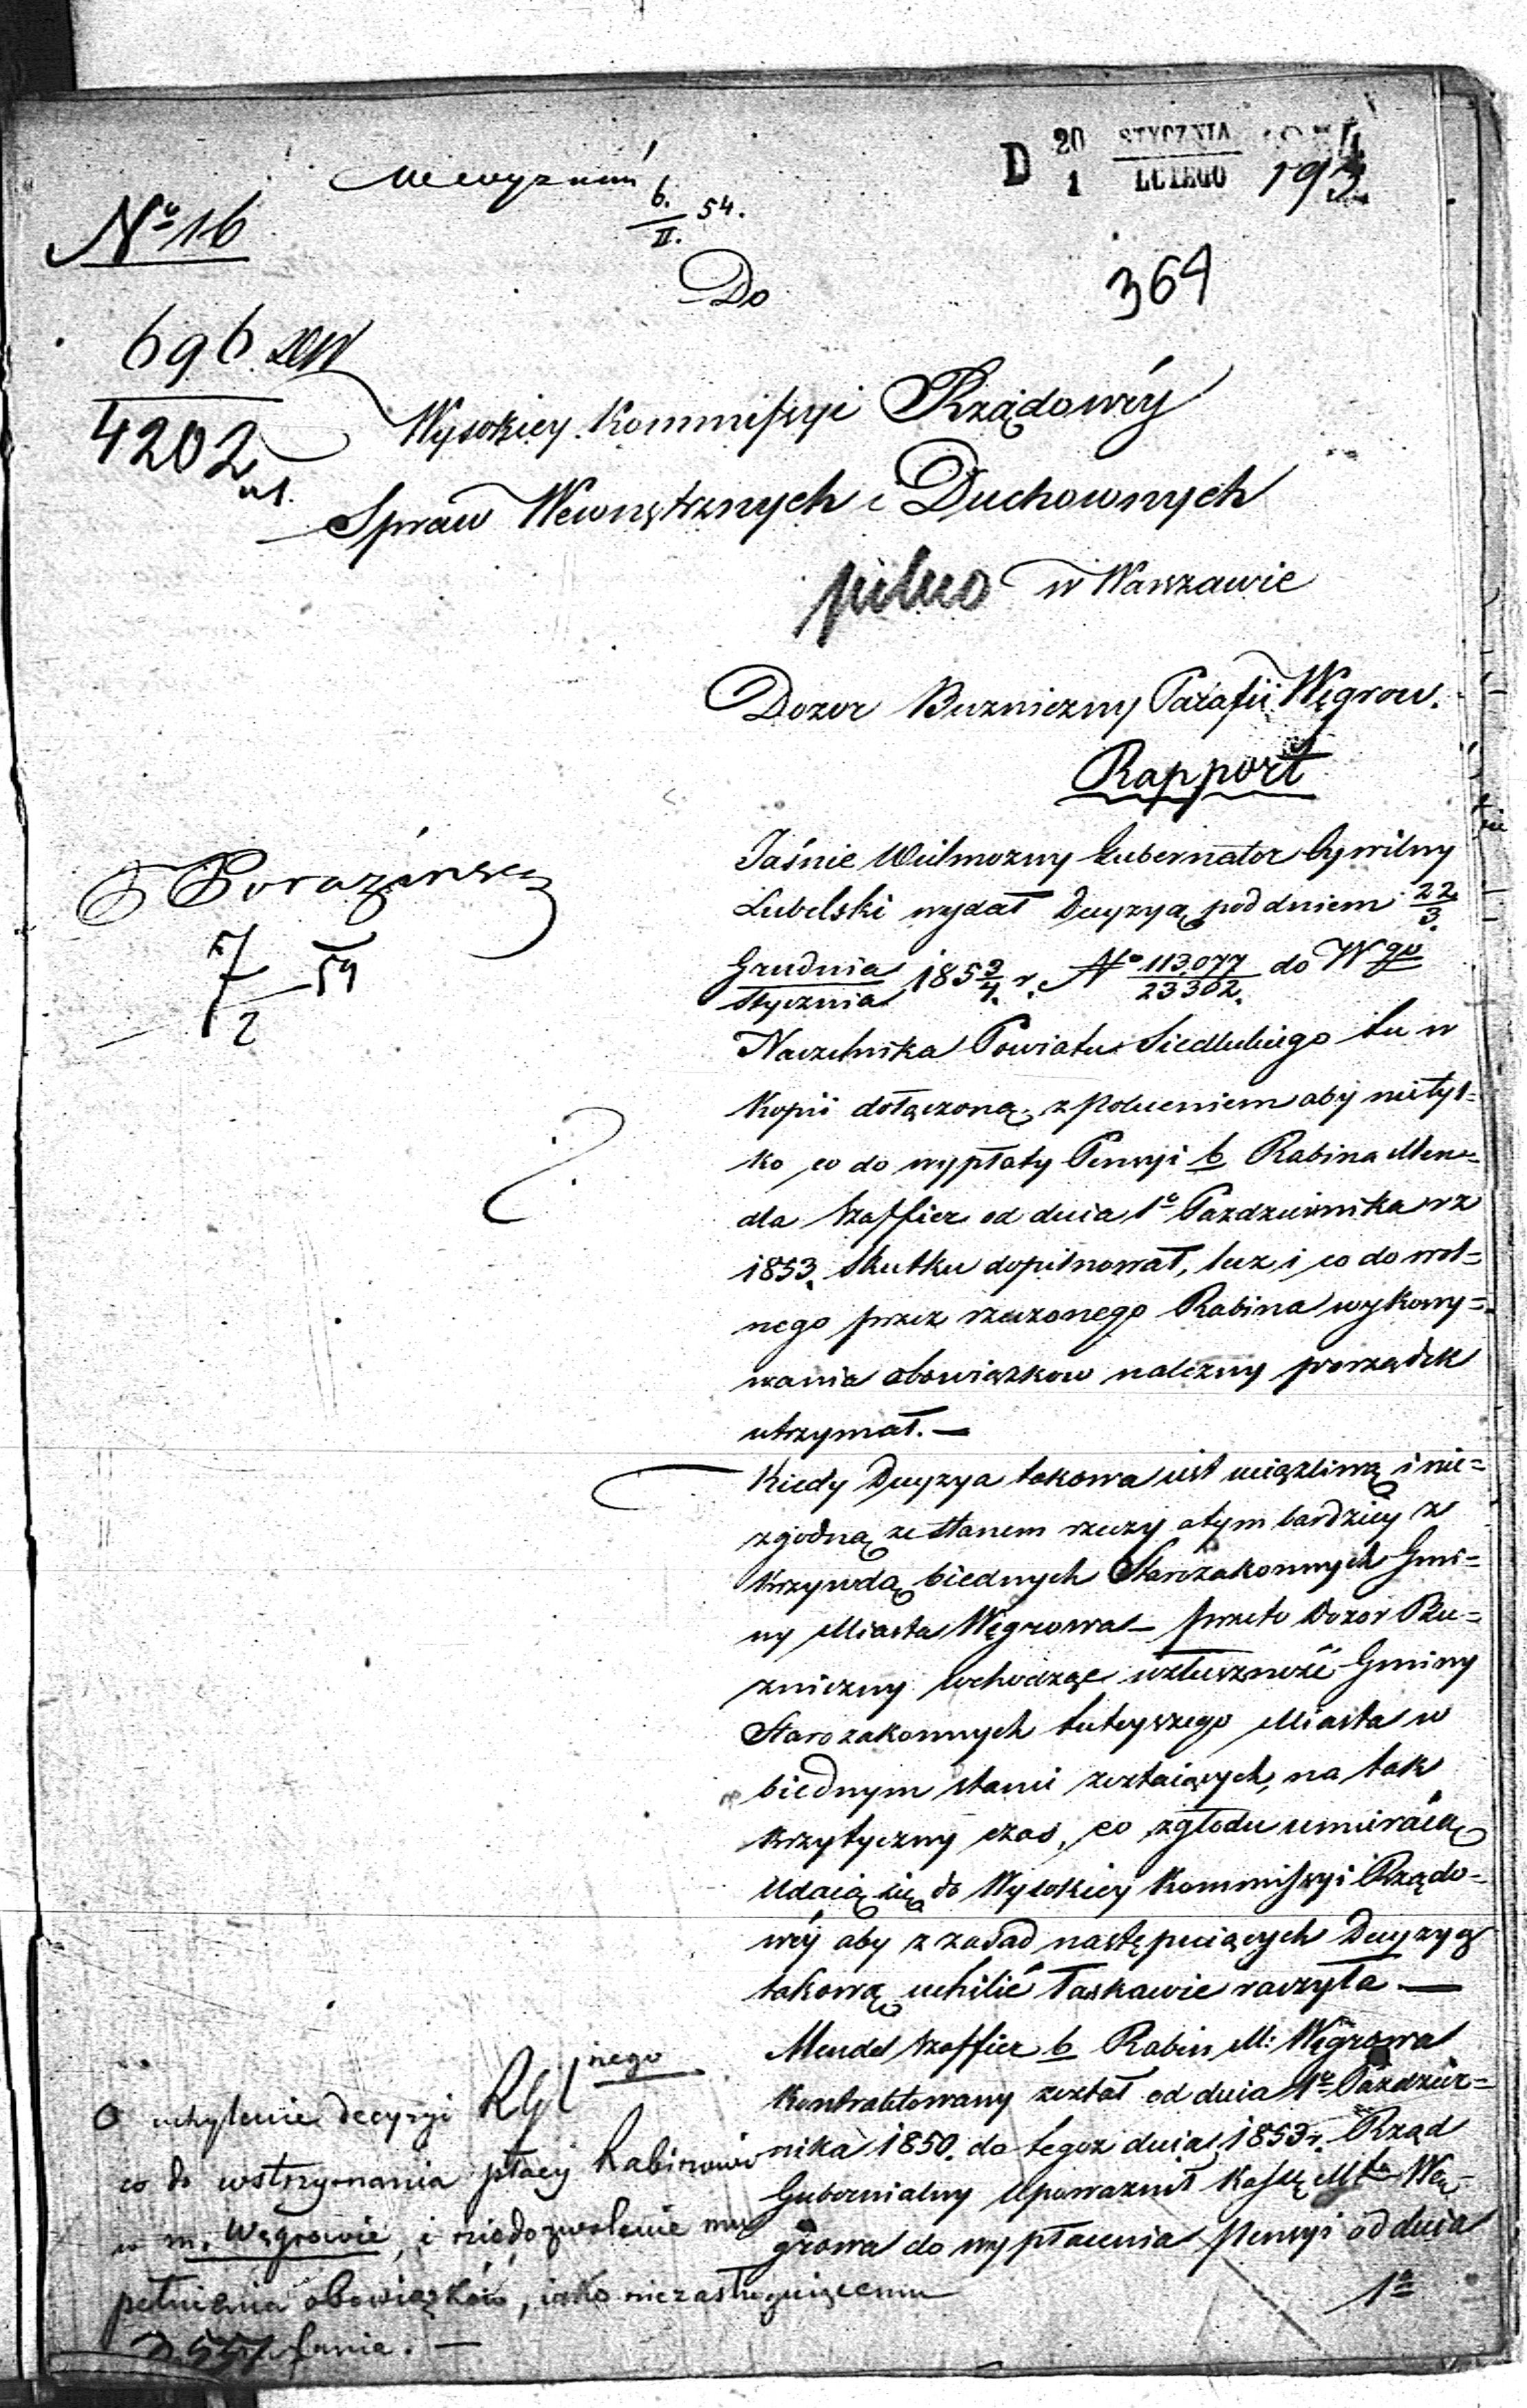 D 20/1 STYCZNIA/LUTEGO 1854
193
No 16
6./II. 54.
Do
364
696
4202
Wysokiey Kommissyi Rządowéy
Spraw Wewnętrznych i Duchownych
pilno w Warszawie
Dozor Buzniczny Parafii Węgrow.
Rapport
Jaśnie Wielmozny Gubernator Cywilny
Lubelski wydał Decyzyą pod dniem 22/3.
Grudnia/Stycznia 1853/4. r. No 113077/23302. do Wgo
7/2 54
Naczelnika Powiatu Siedleckiego tu w
Kopii dołączoną, z poleceniem aby nietyl=
ko co do wypłaty Pensyi b Rabina Men=
dla Szaffier od dnia 1o Pazdziernika rz
1853. skutku dopilnował, lecz i co do wol=
nego przez rzeczonego Rabina wykony=
wania obowiązkow nalezny porządek
utrzymał. —
Kiedy Decyzya takowa iest uciązliwą i nie=
zgodną ze stanem rzeczy a tym bardziey z
krzywdą biednych Starozakonnych Gmi=
ny Miasta Węgrowa — przeto Dozor Bu=
zniczny wchodząc w słuszność Gminy
Starozakonnych tuteyszego Miasta w
biednym stanie zostaiących, na tak
krzytyczny czas, co z głodu umieraią
udaią się do Wysokiey Kommissyi Rządo=
wéy aby z zasad następuiących Decyzyą
takową uchilić łaskawie raczyła —
Mendel Szaffier b Rabin M: Węgrowa
Kontraktowany został od dnia 1o Pazdzier=
nika 1850. do tegoz dnia 1853 r. Rząd
Gubernialny upowaznił Kassę Mta Wę=
growa do wypłacenia Pensyi od dnia
1o
O uchylenie decyzyi Rządu Gubernialnego
co do wstrzymania płacy Rabinowi
w m. Węgrowie, i niedozwolenie mu
pełnienia obowiązków, iako niezasługuiącemu